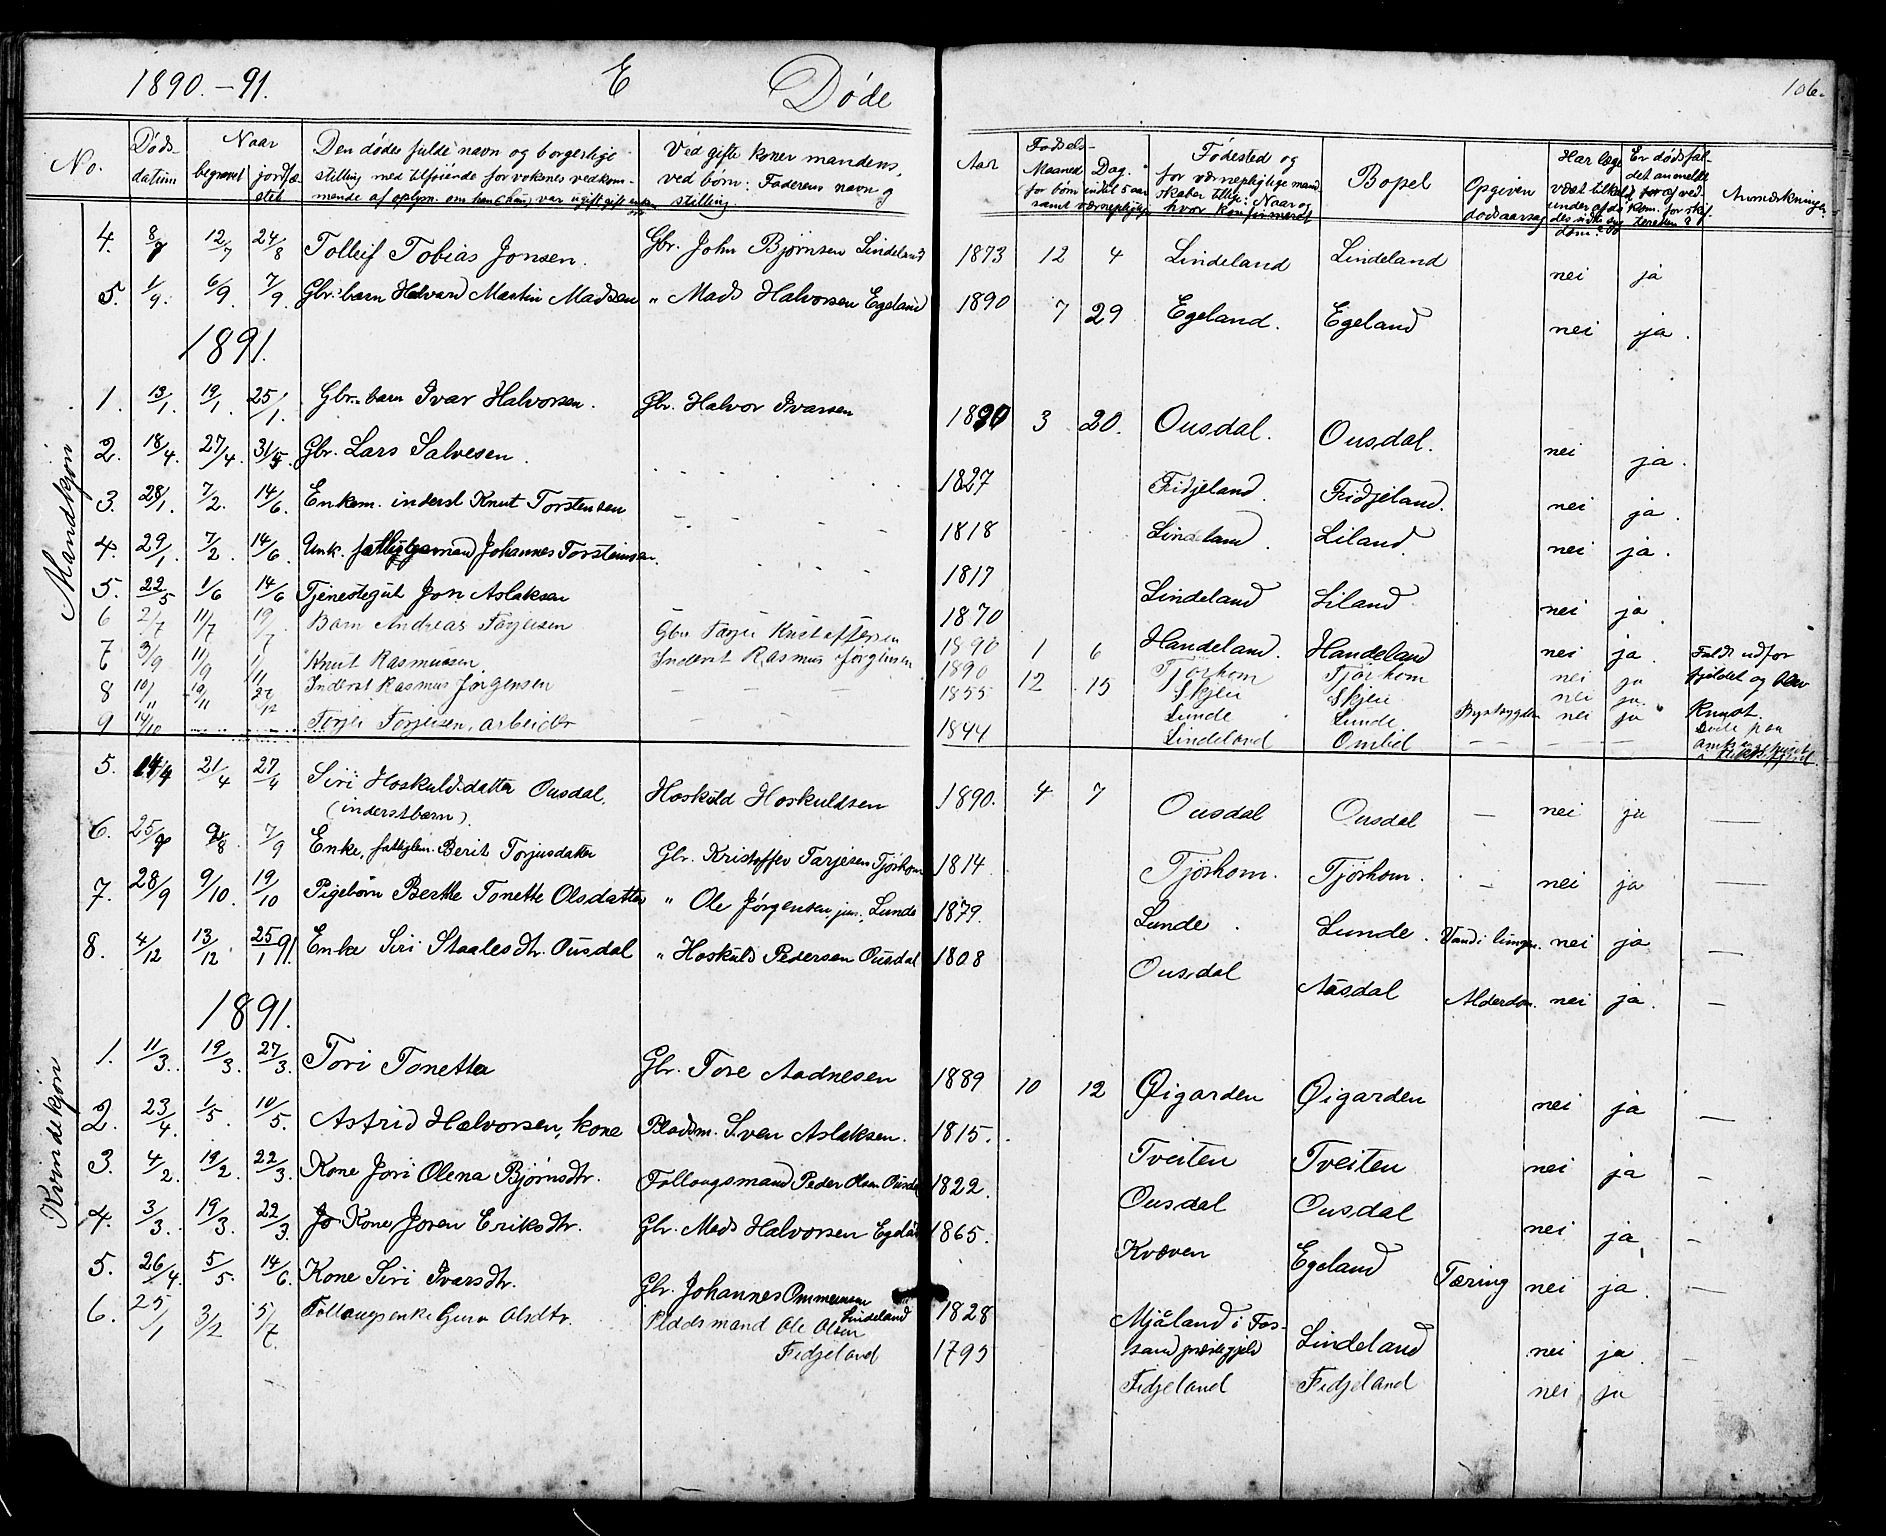 1890.-91. E Døde 106.
No. Døds-datum Naar begravet jordfæstet Den dødes fulde navn og borgerlige stilling med tilføiende for voksnes vedkommende af oplysn. om han (hun) var ugift, gift, enke Ved gifte koner mandens, ved børn: Faderens navn og stilling Aar Fødsels- Maaned Dag. (for børn indtil 5 aar samt værnepligtige Fødested og for værnepligtige mandskaber tillige: Naar og hvor konfirmeret Bopel Opgiven dødsaarsag Har læge været tilkaldt under afdødes sidste sygdom? Er dødsfaldet anmeldt Anmerkninger
Mandkjøn
4. 8/8 12/7 24/8 Tolleif Tobias Jonsen. Gbr. John Bjørnsen Lindeland 1873 12 4 Lindeland Lindeland nei ja
5. 1/9. 6/9. 7/9. Gbr. barn Halvard Martin Madsen " Mads Halvorsen Egeland 1890 7 29 Egeland. Egeland nei ja.
1891.
1. 13/1. 19/1. 25/1. Gbr. barn Ivar Halvorsen. Gbr. Halvor Ivarsen 1890 3 20. Ousdal. Ousdal. nei ja.
2. 18/4. 27/4. 31/5. Gbr. Lars Salvesen. 1827 Fidjeland. Fidjeland. nei ja.
3. 28/1. 7/2. 14/6. Enkem. inderst Knut Torstensen 1818 Lindeland. Liland. nei ja.
4. 29/1. 7/2. 14/6. Unk. fattiglgsmand Johannes Torsteinsen. 1817 Lindeland Liland. nei ja
5. 22/5 1/6 14/6 Tjenestegut Jon Aslaksen 1870 Handeland. Handeland nei ja.
6 2/7 11/7 19/7 Barn Andreas Tarjeisen Gbr Tarjei Kristoffersen 1890 1 6 Tjørhom Tjørhom nei ja
7 3/9 11/9 1/11 Knut Rasmussen Inderst Rasmus Jørgensen 1890 12 15 Skjeii Skjeii nei ja.
8 10/11 19/11 27/12 Inderst Rasmus Jørgensen — — — 1855 Lunde Lunde nei ja Faldt udfor fjeldet og blev knust.
9 14/10 Torjer Torjeisen, arbeider — — 1844 Lindeland Omlid — — — Døde paa
Kvindekjøn
5. 14/4 21/4 27/4 Siri Hoskuldsdatter Ousdal, Hoskuld Hoskuldsen 1890. 4 7 Ousdal Ousdal — nei ja —
(inderstbarn).
6. 25/8 7/9 Enke, fattiglem. Berit Torjusdatter Gbr. Kristoffer Tarjesen Tjørhom 1814 Tjørhom. Tjørhom. — nei ja —
7. 28/9 9/10. 19/10 Pigebørn Berthe Tonette Olsdatter " Ole Jørgensen, jun., Lunde 1879. Lunde. Lunde. Vand i lungen. nei ja —
8. 4/12 13/12. 25/1 91. Enke Siri Staalesdtr. Ousdal " Hoskuld Pedersen Ousdal 1808 Ousdal Aasdal Alderdom. nei ja. —
1891.
1. 11/3. 19/3. 27/3. Tori Tonetta Gbr. Tore Aadnesen 1889 10 12 Øigarden Øigarden nei ja —
2. 23/4. 1/5. 10/5. Astrid Halvorsen, kone Pladsm. Sven Aslaksen. 1815. Tveiten Tveiten nei ja —
3. 4/2. 19/2. 22/3. Kone Jori Olena Bjørnsdtr. Follaugsmand Peder Olsen Ousdal 1822. Ousdal Ousdal nei ja, —
4. 3/3. 19/3. 22/3. Jo Kone Joren Eriksdtr. Gbr. Mads Halvorsen Egeland 1865. Kvæven Egeland Tæring nei ja. —
5. 26/4. 5/5. 14/6. Kone Siri Ivarsdtr. Gbr. Johannes Ommernsen Lindeland 1828 Mjåland i Fossand præstegjeld Lindeland nei ja. —
6. 25/1 3/2 5/7. Follaugsenke Guro Olsdtr. Pladsmand Ole Olsen Fidjeland 1795 Fidjeland Fidjeland nei ja